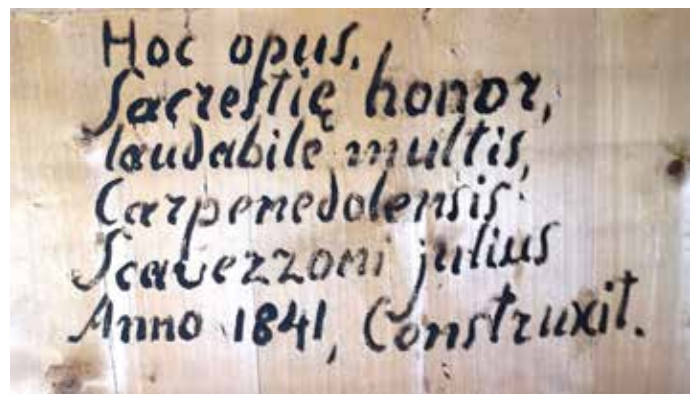 Hoc opus,
Sacrestię honor,
laudabile multis,
Carpenedolensis
Scavezzoni julius
Anno 1841, Construxit.